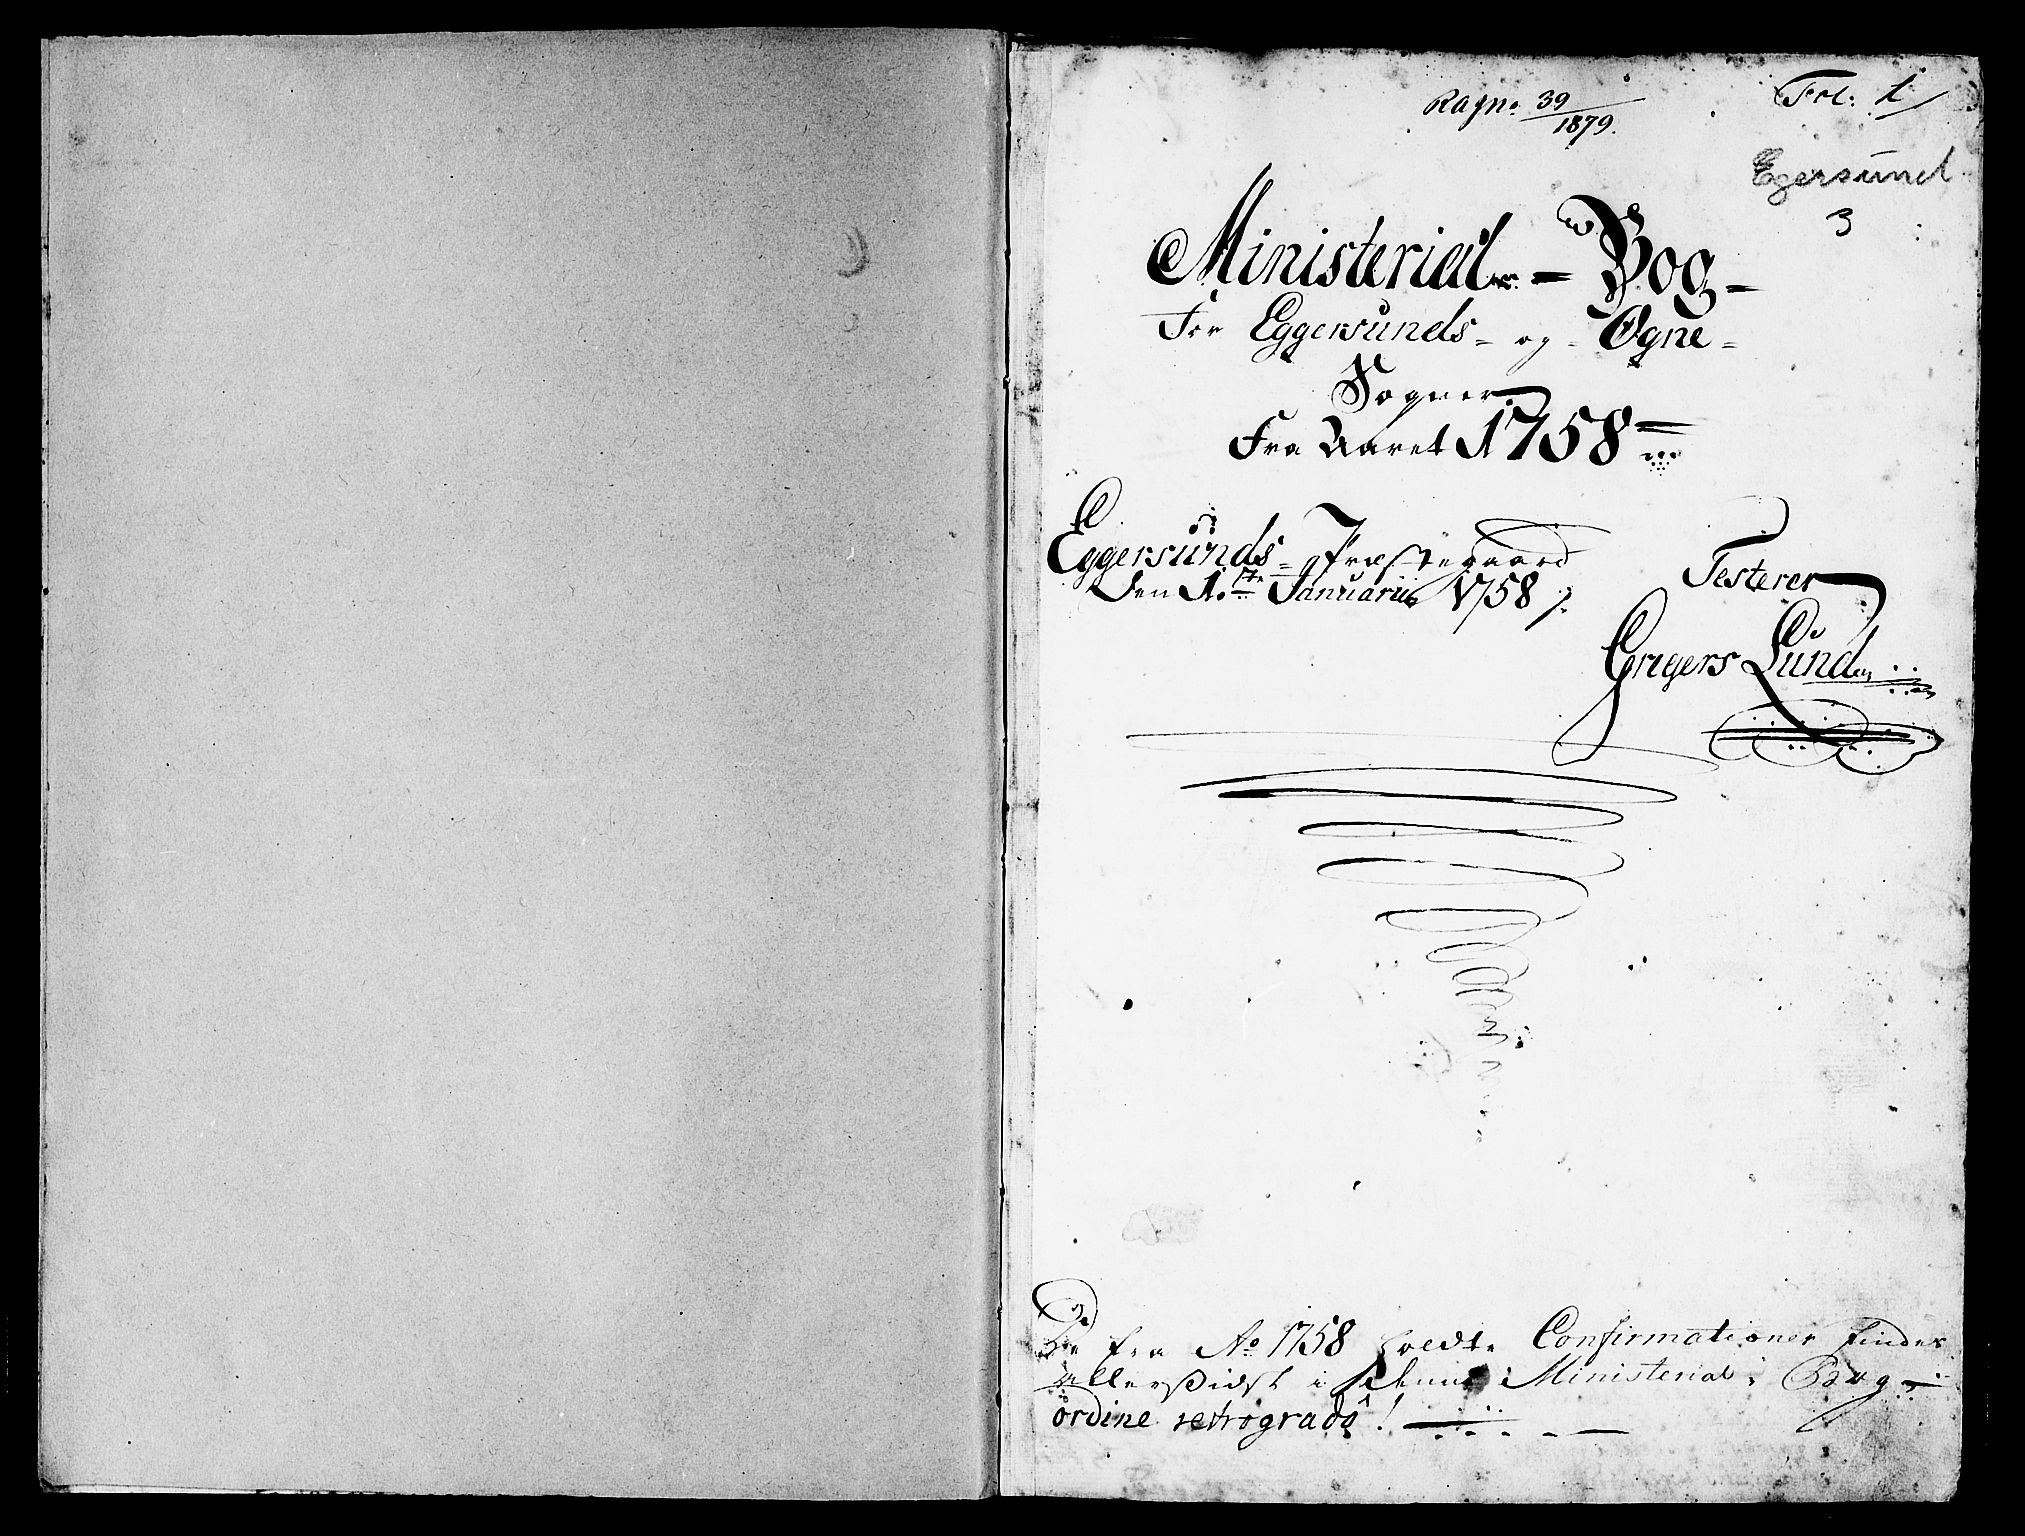 Ragn. 39/1879.
Fol: 1
Egersund
3
Ministerial - Bog -
For Eggersunds - og - Ogne -
Sogner
Fra Aaret 1758
Eggersunds - Præstegaard
Den 1.te Januarii 1758 /.
Testerer
Grigers Lund
De fra Ao 1758 holdte Confirmationer findes
allersidst i denne Ministerial: Bog -
ordine retrogradô!